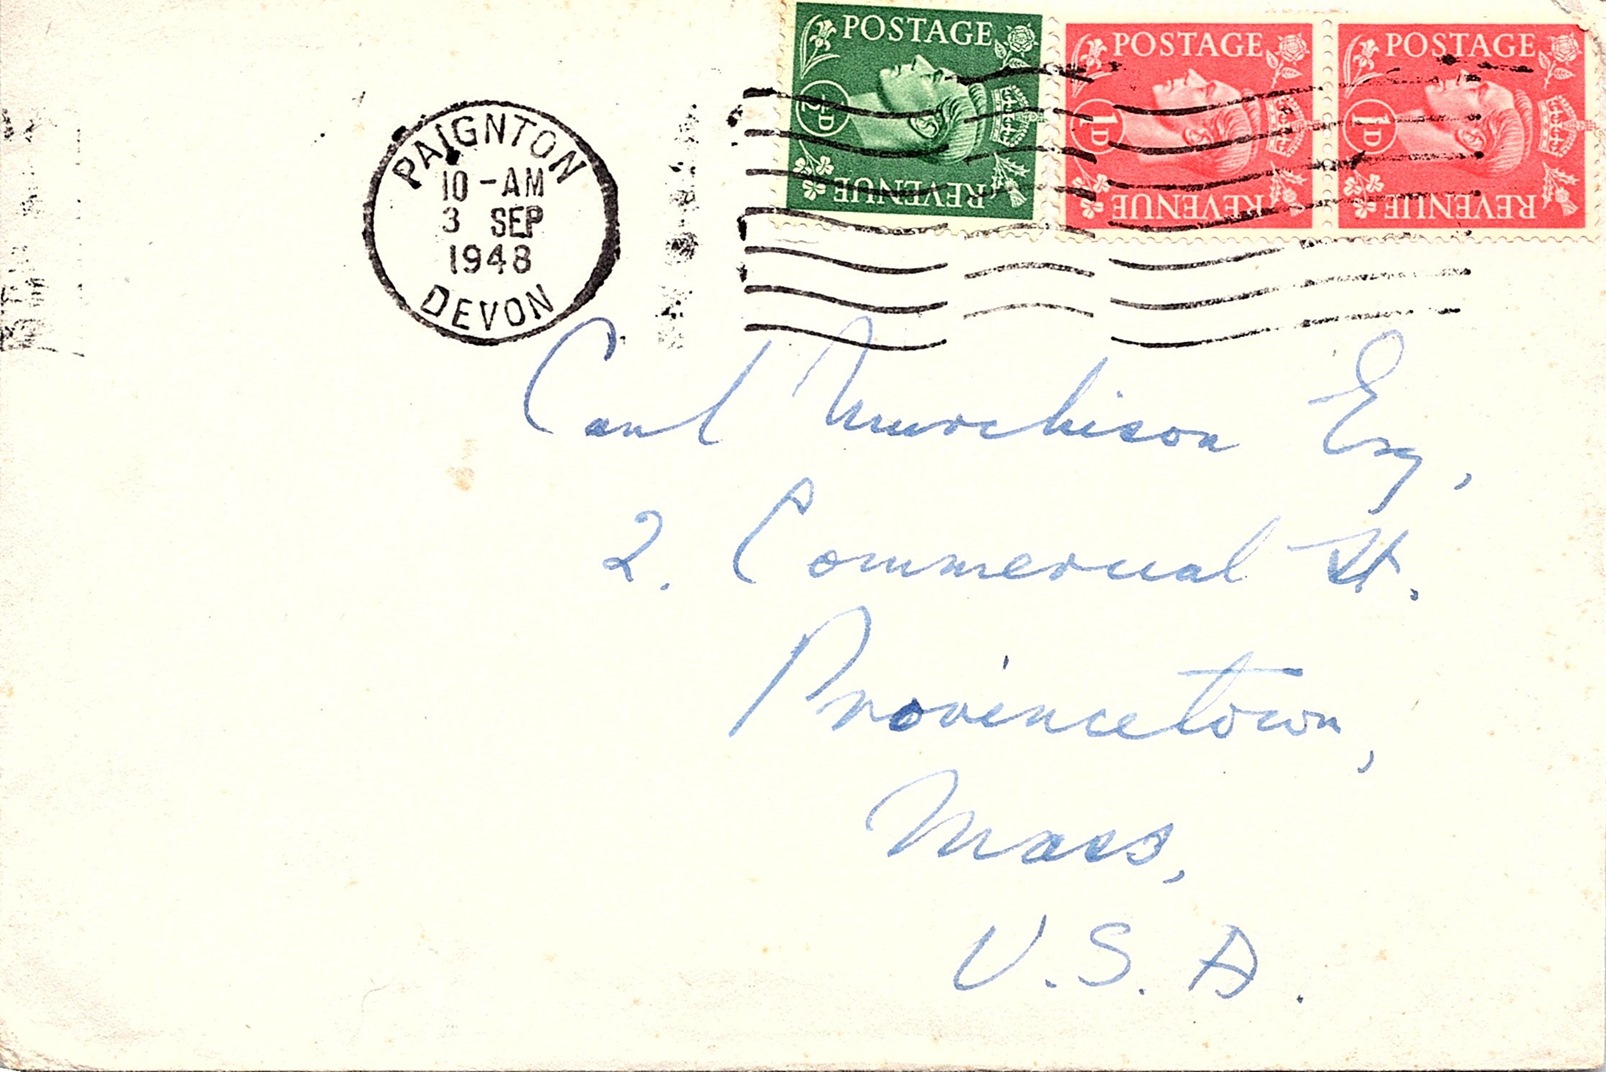 POSTAGE POSTAGE POSTAGE
½D 1D 1D
REVENUE REVENUE REVENUE
PAIGNTON
10-AM
3 SEP
1948
DEVON
Carl Murchison Esq,
2. Commercial St.
Provincetown,
Mass,
U.S.A.